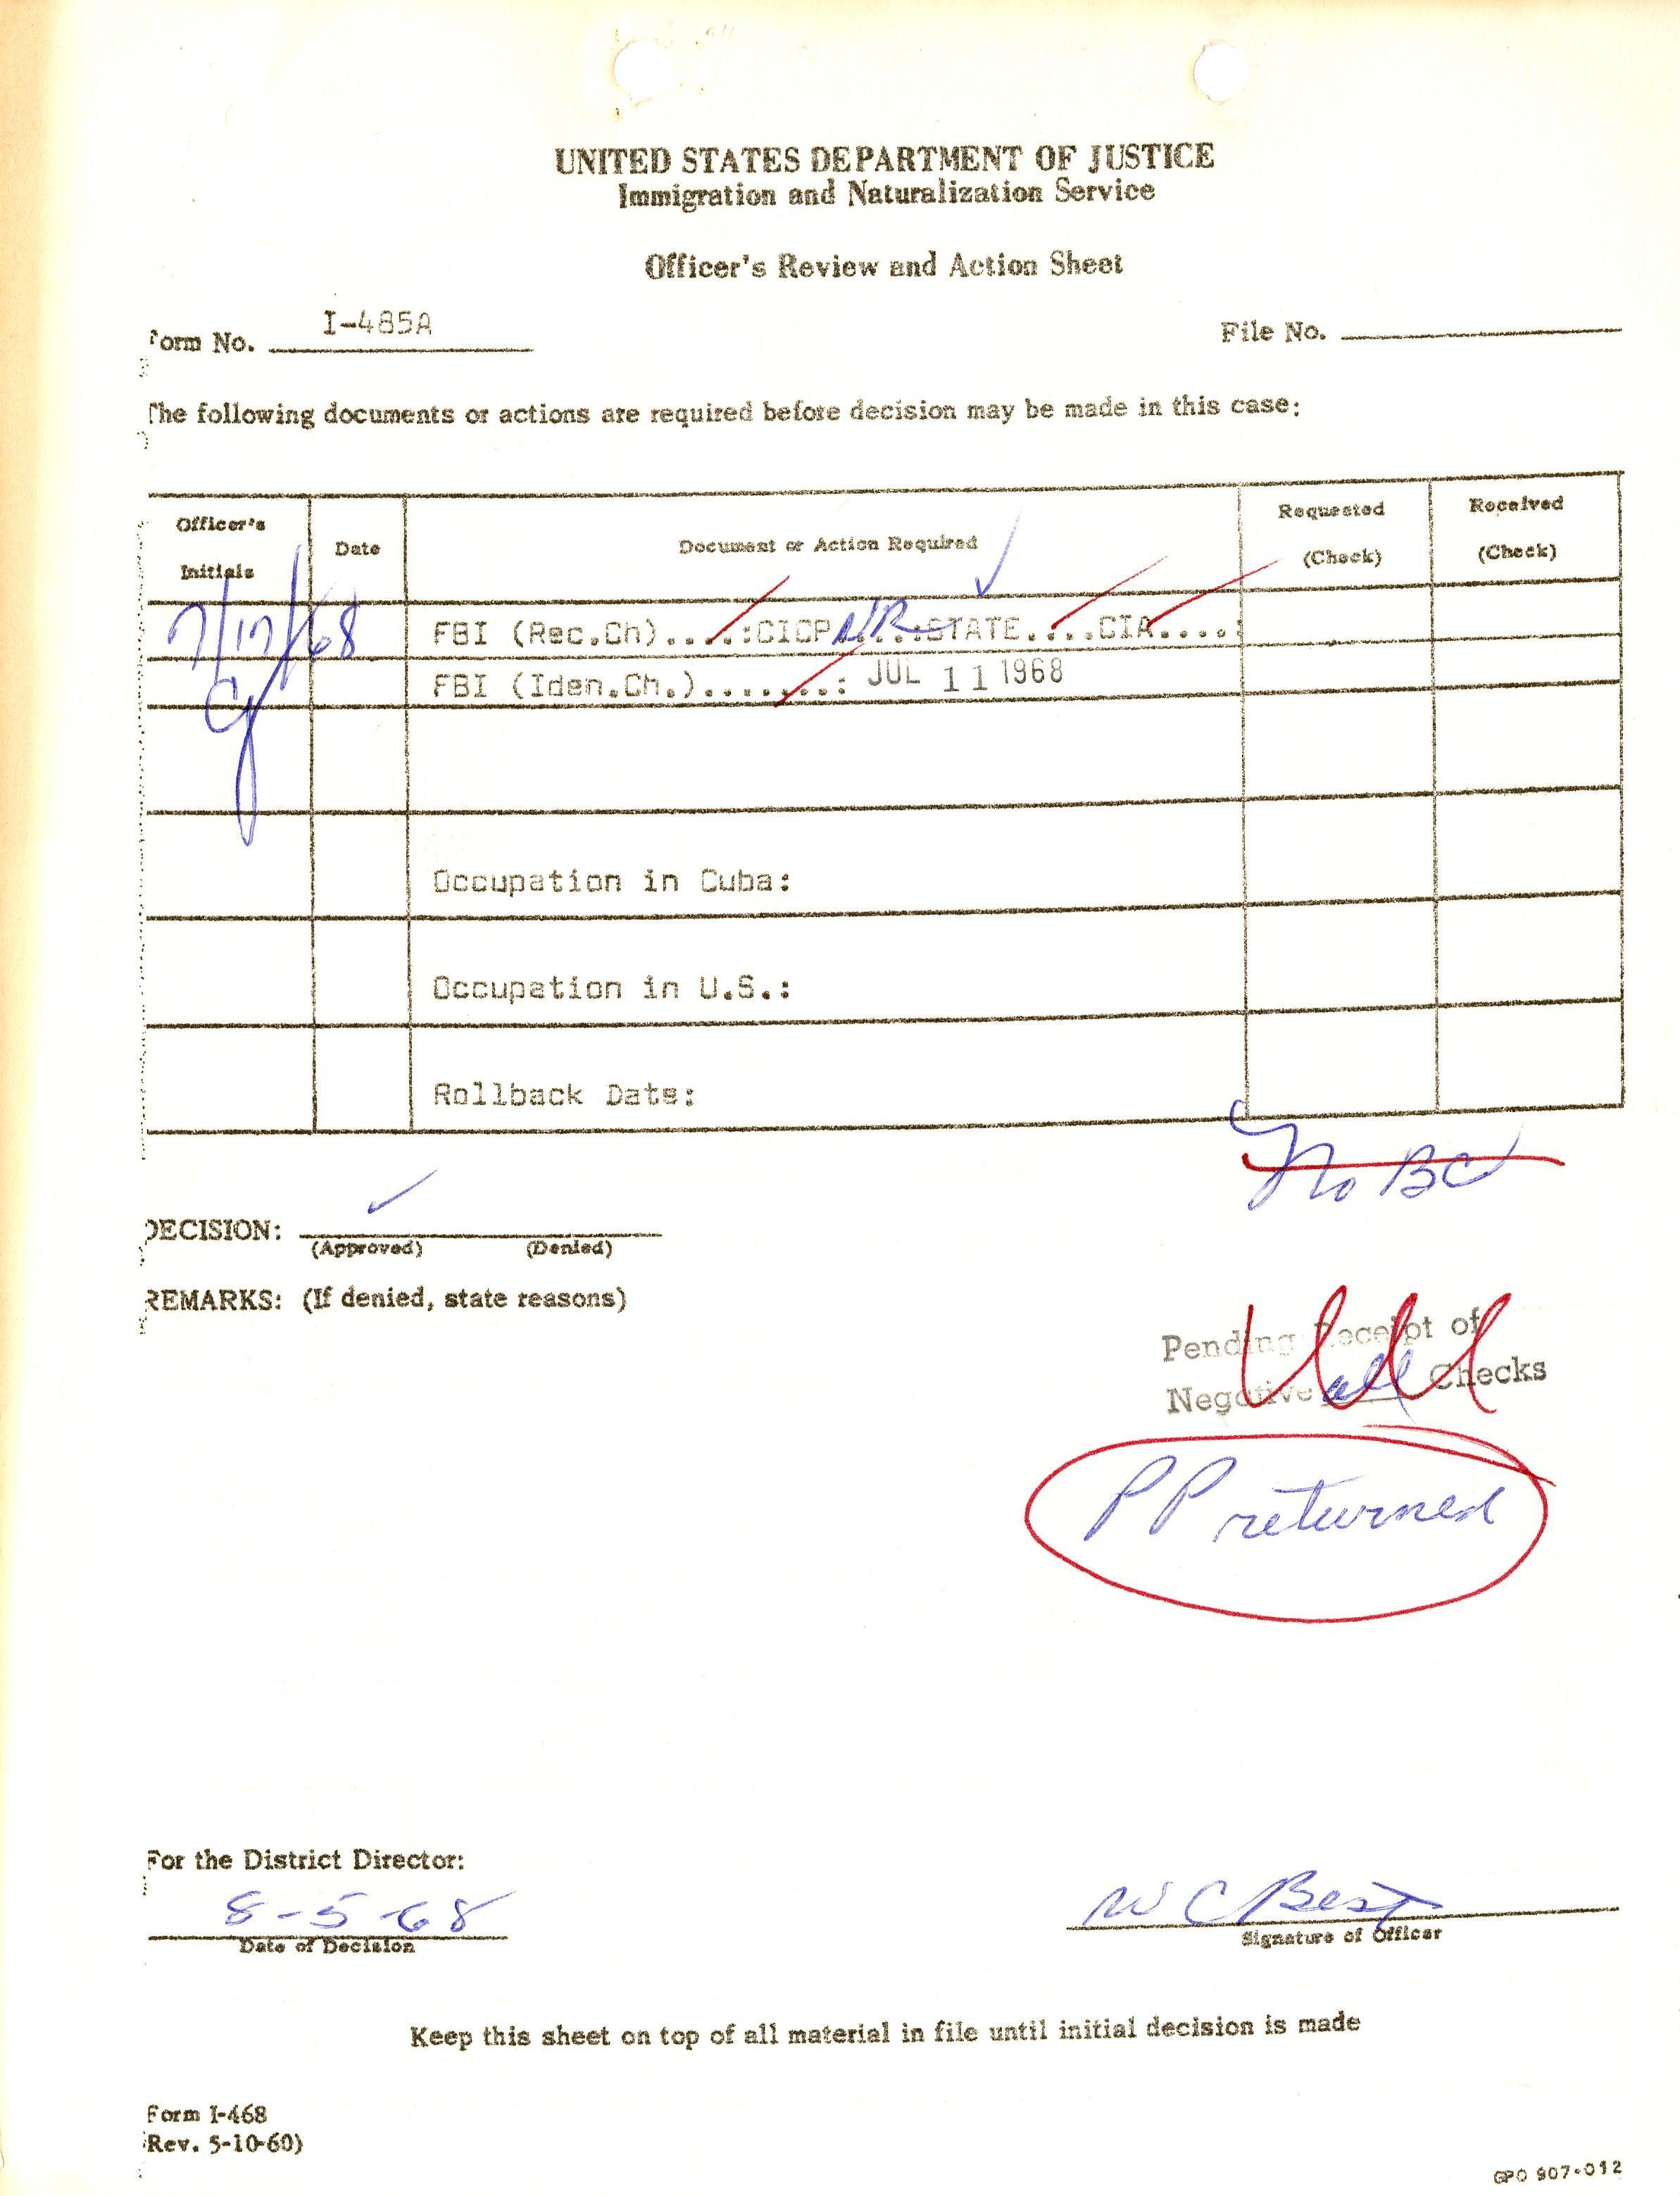 UNITED STATES DEPARTMENT OF JUSTICE
Immigration and Naturalization Service
Officer's Review and Action Sheet
Form No. I-485A File No.
The following documents or actions are required before decision may be made in this case:
Officer's Initials Date Document or Action Required Requested (Check) Received (Check)
7/17/68 FBI (Rec.Ch).....:CICP NR....:STATE....CIA....:
FBI (Iden.Ch.)........: JUL 11 1968
Occupation in Cuba:
Occupation in U.S.:
Rollback Date:
No BC
DECISION:
(Approved) (Denied)
REMARKS: (If denied, state reasons)
Pending Receipt of
Negative all Checks
PP returned
For the District Director:
8-5-68 W C Best
Date of Decision Signature of Officer
Keep this sheet on top of all material in file until initial decision is made
Form I-468
Rev. 5-10-60)
GPO 907-012